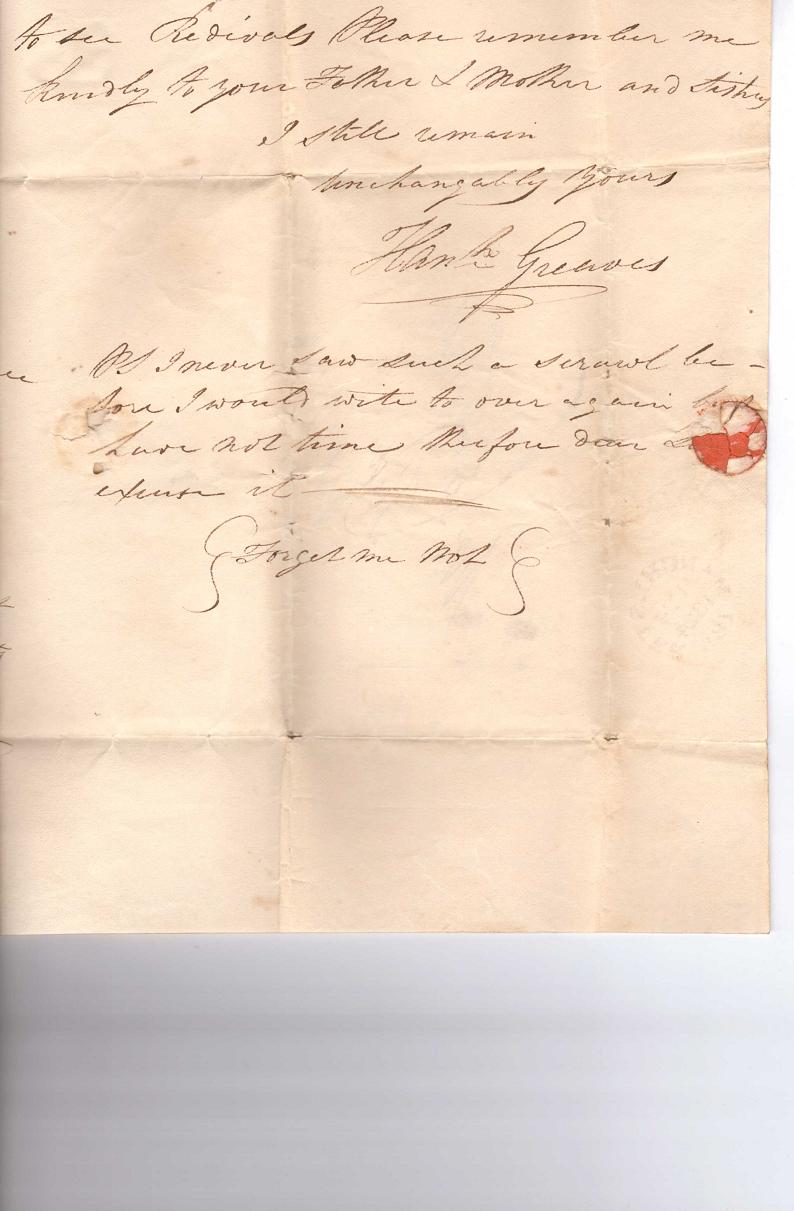 to see Redivals Please remember me
kindly to your Father & Mother and Sisters
I still remain
unchangably Yours
Hanh Greaves
PS I never saw such a scrawl be -
fore I would wite to over again but
have not time thefore dear
excuse it
Forget me Not